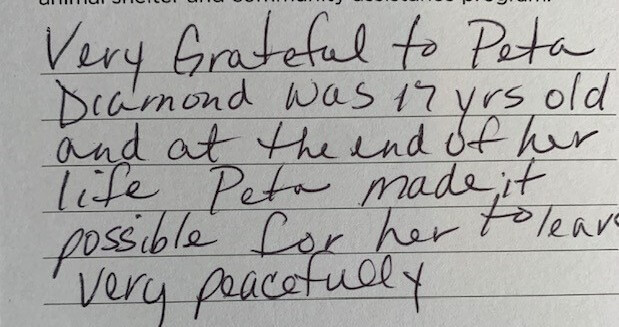 animal shelter and community assistance program.
Very Grateful to Peta
Diamond was 17 yrs old
and at the end of her
life Peta made it
possible for her to leave
very peacefully